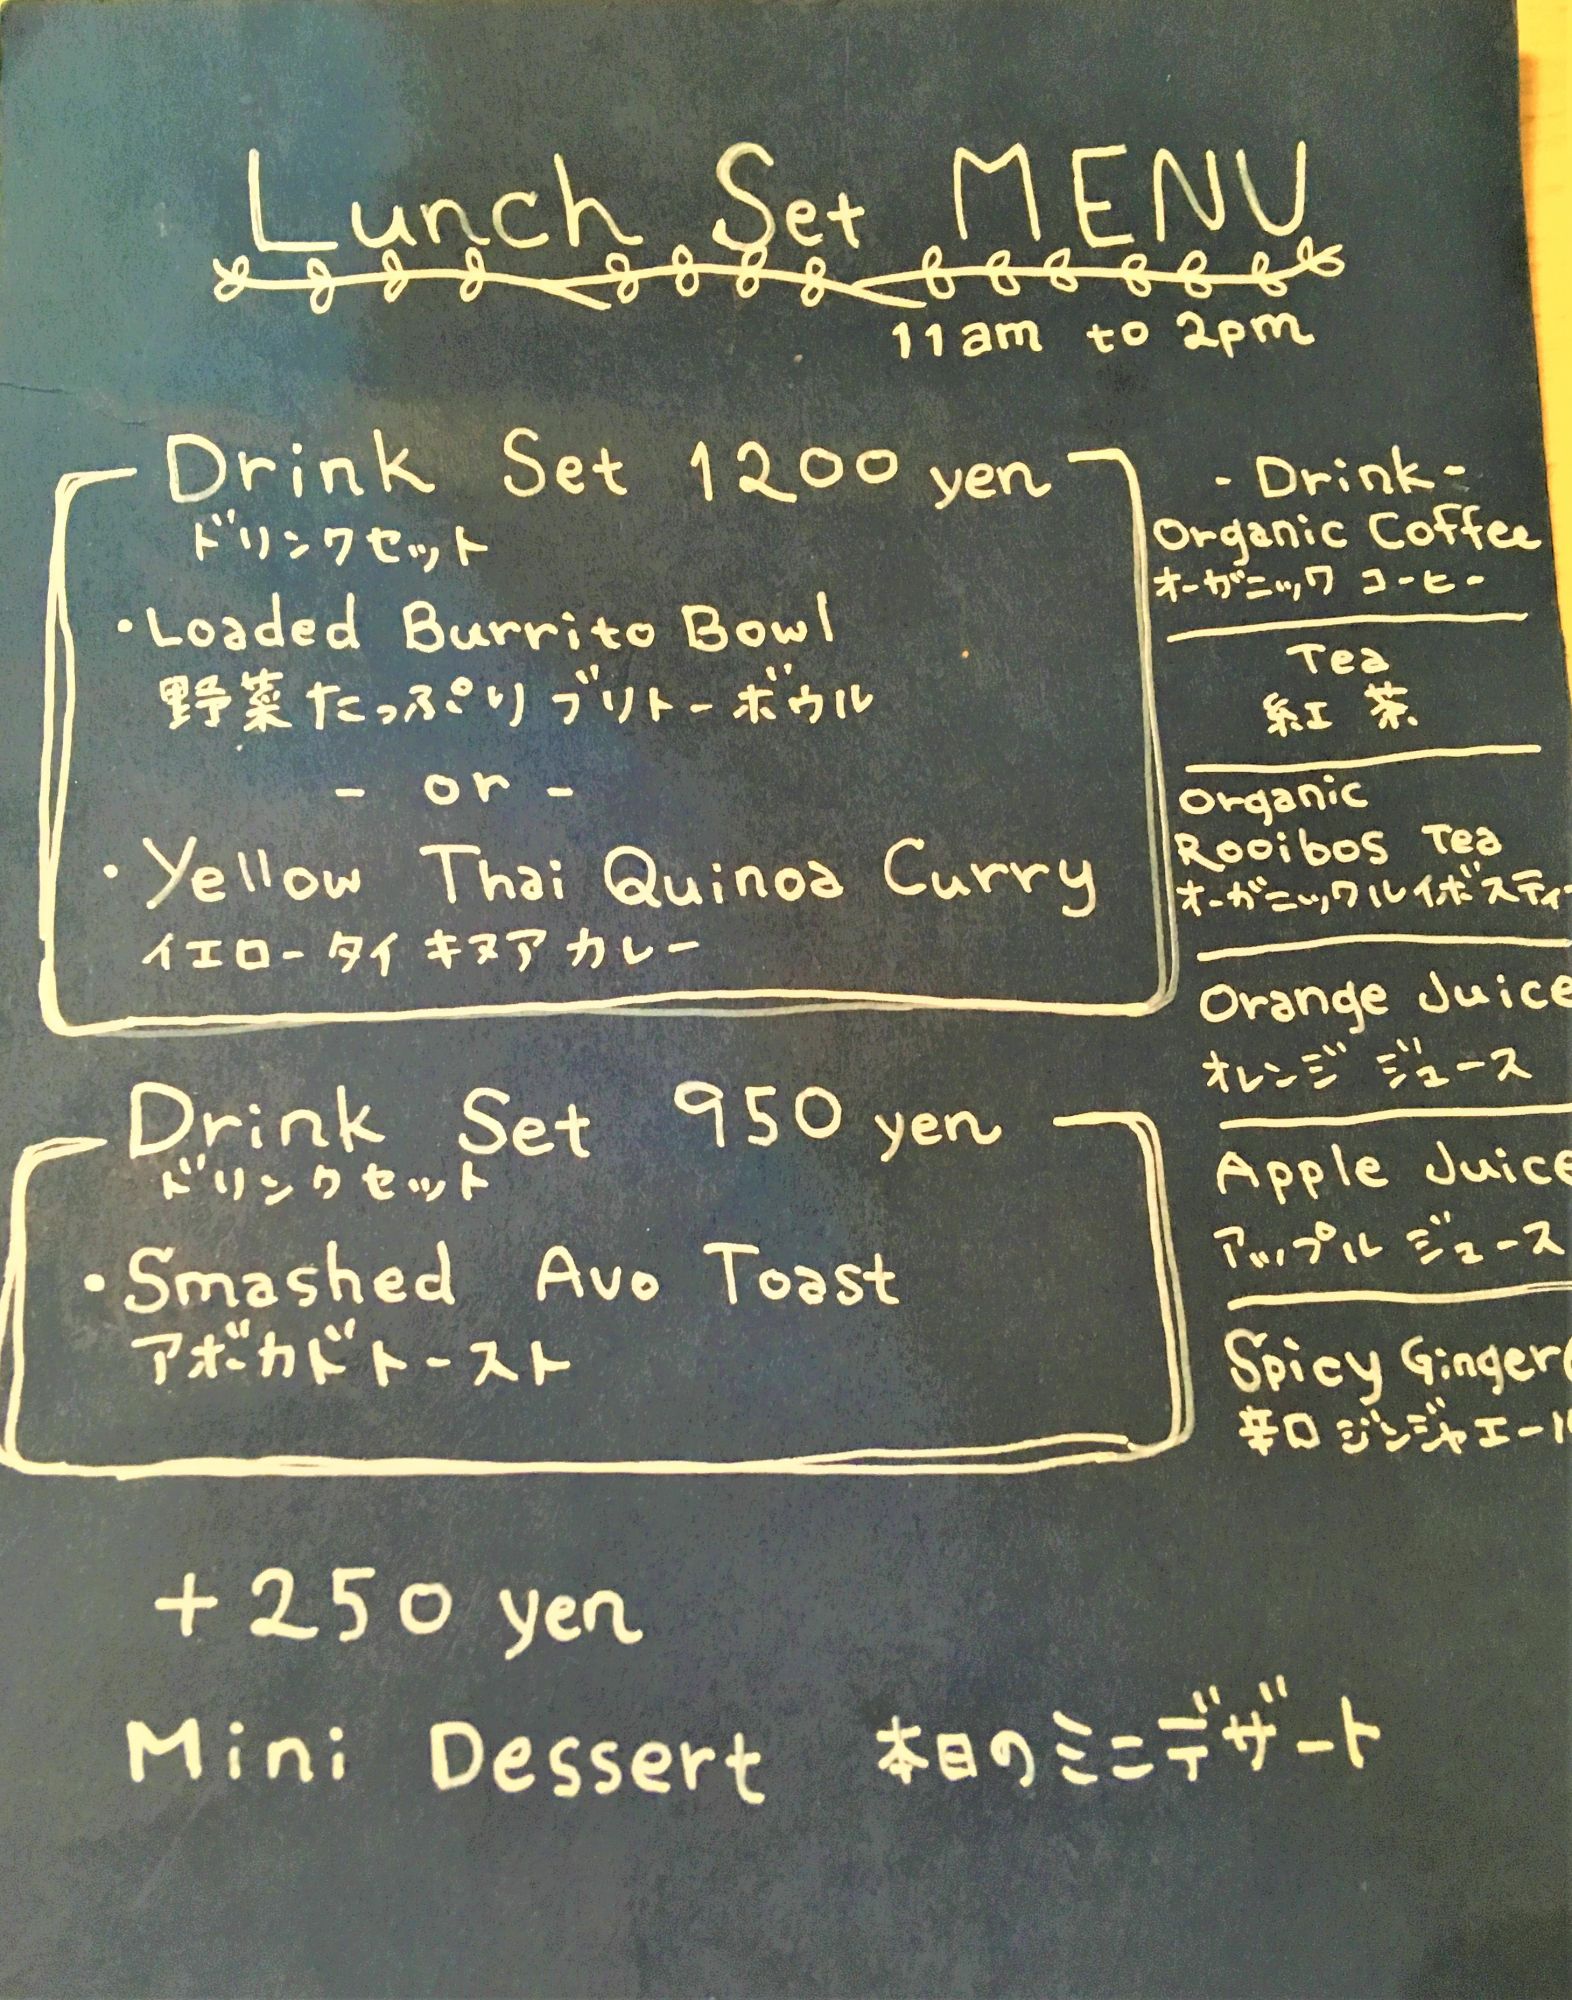 Lunch Set MENU
11am to 2pm
Drink Set 1200 yen
ドリンクセット
・Loaded Burrito Bowl
野菜たっぷりブリトーボウル
- or -
・Yellow Thai Quinoa Curry
イエロータイ キヌア カレー
Drink Set 950 yen
ドリンクセット
・Smashed Avo Toast
アボカドトースト
+250 yen
Mini Dessert 本日のミニデザート
- Drink -
Organic Coffee
オーガニック コーヒー
Tea
紅茶
Organic
Rooibos Tea
オーガニックルイボスティー
Orange Juice
オレンジ ジュース
Apple Juice
アップル ジュース
Spicy Ginger
辛口 ジンジャエール